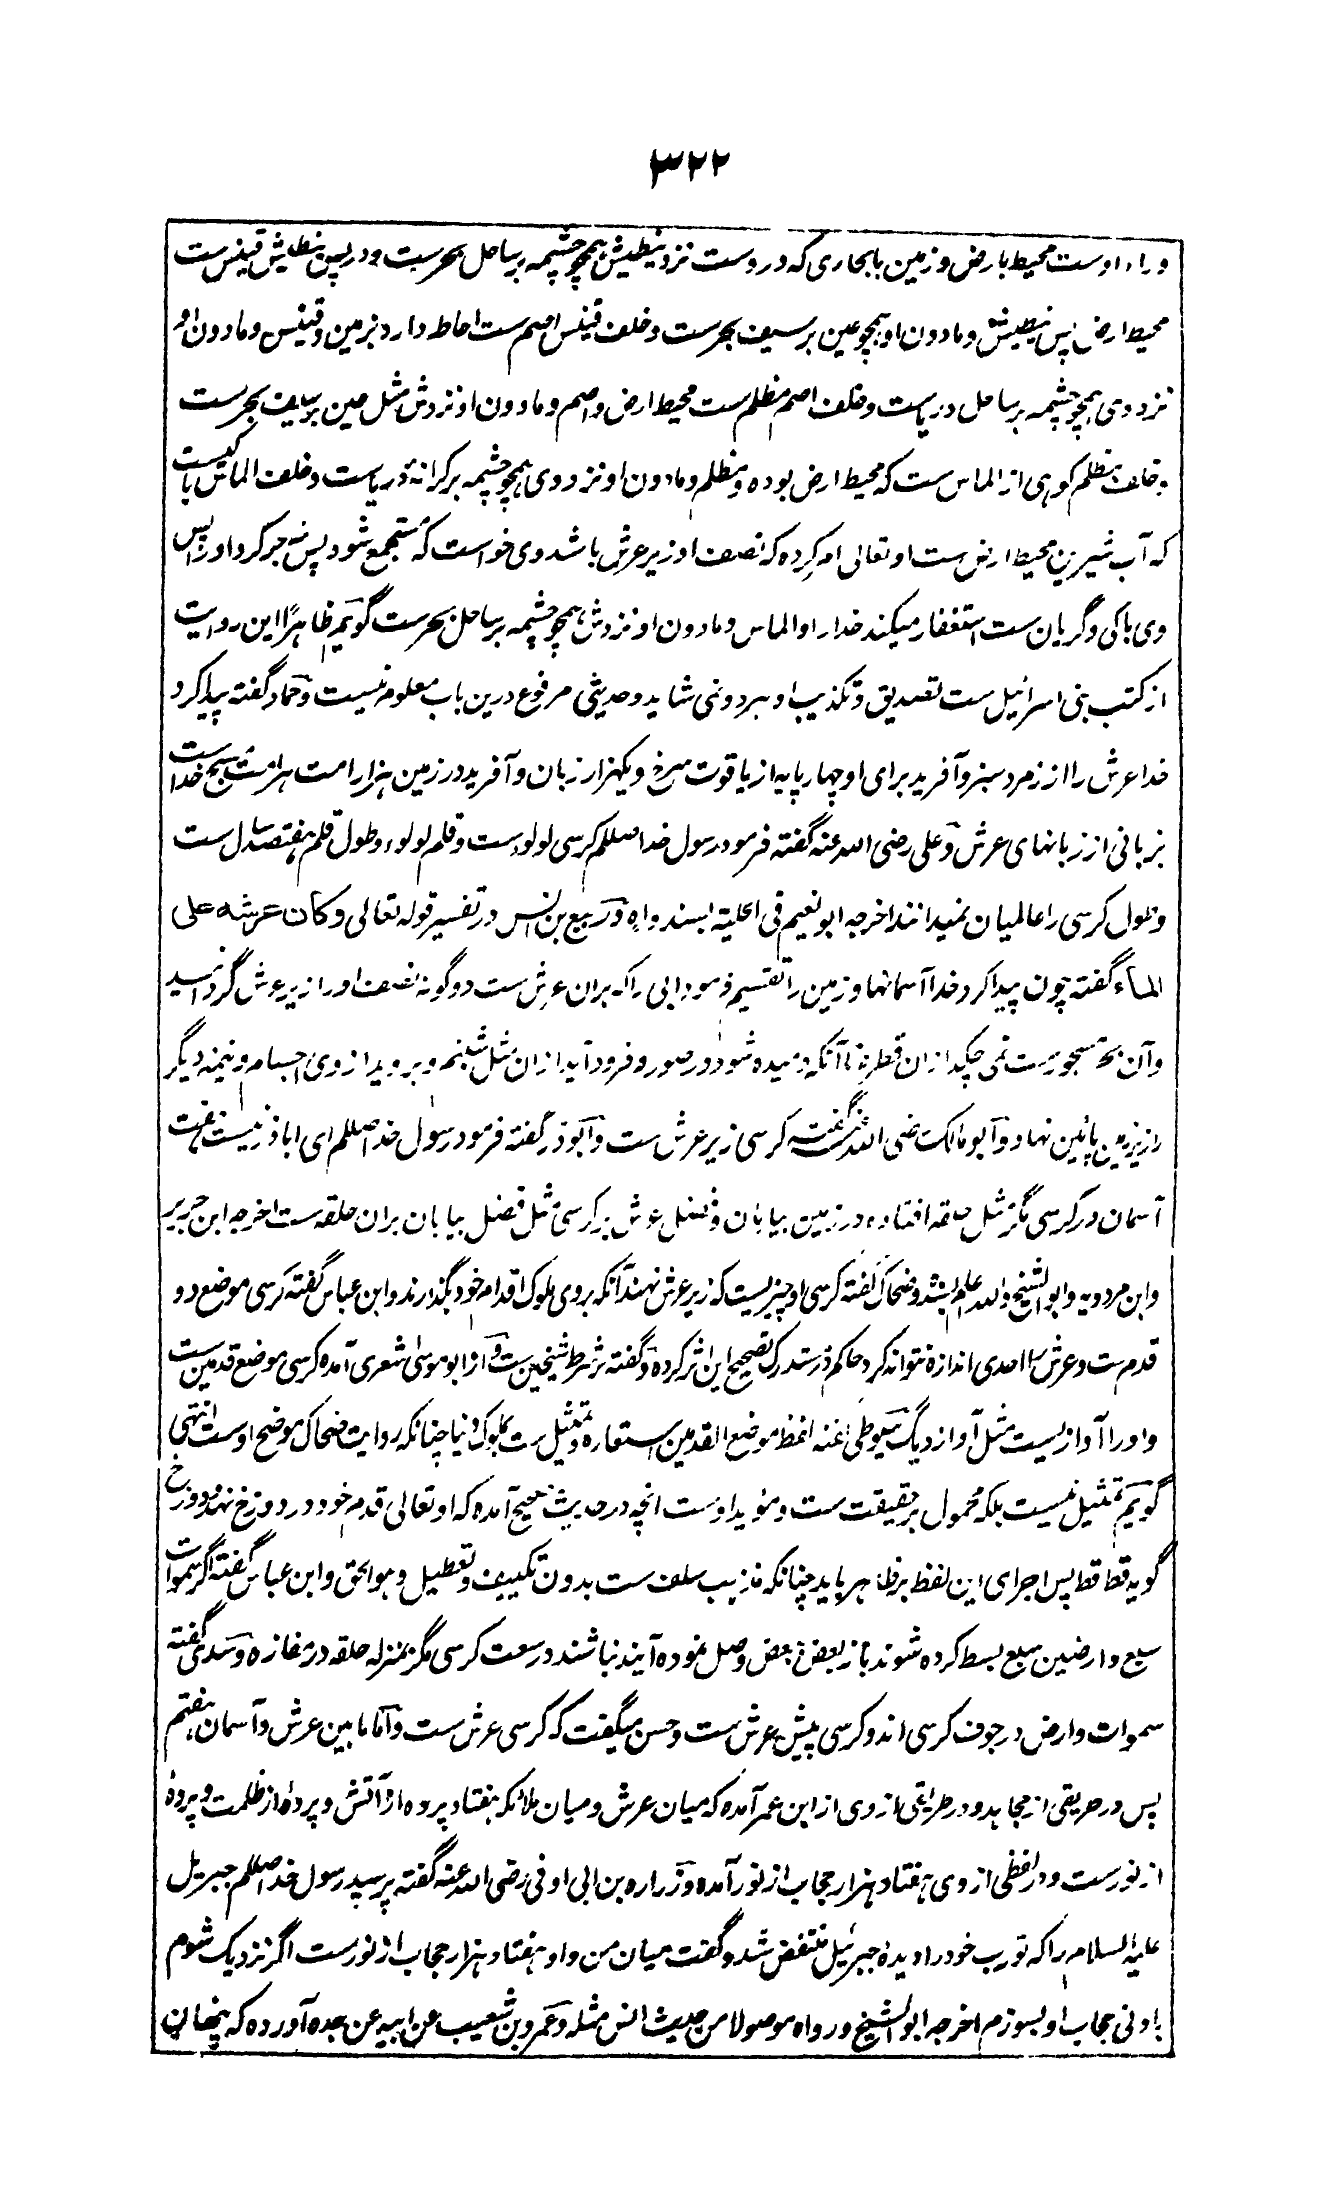 ۳۲۲
وراء اوست محیط بارض و زمین با بحاری که در وست نزد ینطیش همچو چشمه بر ساحل بحرست و در پس ینطیش قینس ست
محیط ارض پس ینطیش و مادون او همچو عین بر سیف بحرست و خلف قینس اصم ست احاطه دارد بزمین و قینس و مادون او
نزد وی همچو چشمه بر ساحل دریاست و خلف اصم مظلم ست محیط ارض و اصم و مادون او نزدش مثل عین بر سیف بحرست
و خلف مظلم کوهی از الماس ست که محیط ارض بوده و مظلم و مادون او نزد وی همچو چشمه بر کرانهٔ دریاست و خلف الماس باکیست
که آب شیرین محیط ارض ست او تعالی امر کرده که نصف او زیر عرش باشد وی خواست که مستجمع شود پس زجر کرد او را پس
وی باکی و گریان ست استغفار میکند خدا را و الماس و مادون او نزدش همچو چشمه بر ساحل بحرست گویم ظاهرًا این روایت
از کتب بنی اسرائیل ست تصدیق و تکذیب او هر دو نمی شاید و حدیثی مرفوع درین باب معلوم نیست و حماد گفته پیدا کرد
خدا عرش را از زمرد سبز و آفرید برای او چهار پایه از یاقوت سرخ و یکهزار زبان و آفرید در زمین هزار امت هر امت مسبح خداست
بزبانی از زبانهای عرش و علی رضی الله عنه گفته فرمود رسول خدا صللم کرسی لولوست و قلم لولوء و طول قلم هفتصد سال ست
و طول کرسی را عالمیان نمیدانند اخرجه ابو نعیم فی الحلیة بسند واه و ربیع بن انس در تفسیر قوله تعالی و کان عرشه علی
الماء گفته چون پیدا کرد خدا آسمانها و زمین را تقسیم فرمود آبی را که بران عرش ست دو گونه نصف او را زیر عرش گردانید
وآن بحر مسجورست نمی چکد ازان قطرۀ تا آنکه دمیده شود در صور و فرود آید ازان مثل شبنم و بروید از وی اجسام و نیمه دیگر
را زیر زمین پائین نهاد و ابو مالک رضی الله عنه گفته کرسی زیر عرش ست و ابو ذر گفته فرمود رسول خدا صللم ای اباذر نیست هفت
آسمان در کرسی مگر مثل حلقه افتاده در زمین بیابان و فضل عرش بر کرسی مثل فضل بیابان بران حلقه ست اخرجه ابن جریر
وابن مردویه و ابو الشیخ و الله اعلم بسنده و ضحاک گفته کرسی او چیزیست که زیر عرش نهند آنکه بروی ملوک اقدام خود بگذارند و ابن عباس گفته کرسی موضع دو
قدم ست و عرش را احدی اندازه نتواند کرد حاکم در مستدرک تصحیح این اثر کرده و گفته بر شرط شیخین ست و از ابو موسی اشعری آمده کرسی موضع قدمین ست
و او را آوازیست مثل آواز دیگ سیوطی گفته لفظ موضع القدمین استعاره و تمثیل ست بملوک دنیا چنانکه روایت ضحاک موضح اوست انتهی
گویم تمثیل نیست بلکه محمول بر حقیقت ست و مؤید اوست انچه در حدیث صحیح آمده که او تعالی قدم خود در دوزخ نهد و دوزخ
گوید قط قط پس اجرای این لفظ بر ظاهر باید چنانکه مذهب سلف ست بدون تکییف و تعطیل و هو الحق و ابن عباس گفته اگر سموات
سبع و ارضین سبع بسط کرده شوند باز بعض ببعض وصل نموده آیند نباشند در سعت کرسی مگر بمنزله حلقه در مفازه و سدی گفته
سموات و ارض در جوف کرسی اند و کرسی پیش عرش ست و حسن میگفت که کرسی عرش ست و اما ما بین عرش و آسمان هفتم
پس در طریقی از مجاهد و در طریقی از وی از ابن عمر آمده که میان عرش و میان ملائکه هفتاد پرده از آتش و پردۀ از ظلمت و پردۀ
از نورست و در لفظی از وی هفتاد هزار حجاب از نور آمده و زراره بن ابی اوفی رضی الله عنه گفته پرسید رسول خدا صللم جبریل
علیه السلام را که تو رب خود را دیدۀ جبرئیل منتفض شد و گفت میان من و او هفتاد هزار حجاب از نورست اگر نزدیک شوم
بادنی حجاب او بسوزم اخرجه ابو الشیخ و رواه موصولا من حدیث انس مثله و عمرو بن شعیب عن ابیه عن جده آورده که پنهان